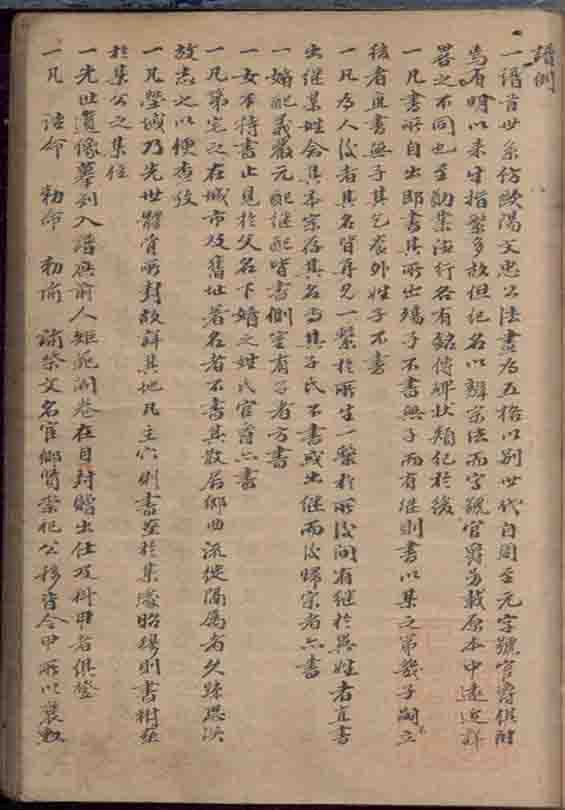 譜例
一譜首世系仿歐陽文忠公法畫為五格以別世代自周至元字號官爵俱附
焉有明以來宇指繁多故但紀名以辨宗法而字號官爵另載原本中遠近詳
畧之不同也至勛業德行各有銘傳婦狀類紀於後
一凡書所自出即書其所出殤子不書無子而有繼則書以某之第幾子嗣立
後者直書無子其乞養外姓子不書
一凡為人後者其名皆再見一繫於所生一繫於所後間有繼於異姓者直書
出繼某姓舍其本宗存其名而其子氏不書或出繼而後歸宗者亦書
一婚配義嚴元配繼配皆書側室有子者方書
一女不特書止見於父名下婿之姓氏官爵亦書
一凡第宅之在城市及舊址著名者不書其散居鄉曲流徙隔屬者久跡恐決
故志之以便查攷
一凡塋域乃先世體骨所封故詳其地凡主穴則書至於集塋昭穆則書附葬
於某公之某位
一先世遺像摹列入譜庶前人矩範開卷在目封贈出仕及科甲者俱登
一凡 誥命 勅命 勅諭 諭祭文名宦鄉賢崇祀公移皆令甲所以褒勲